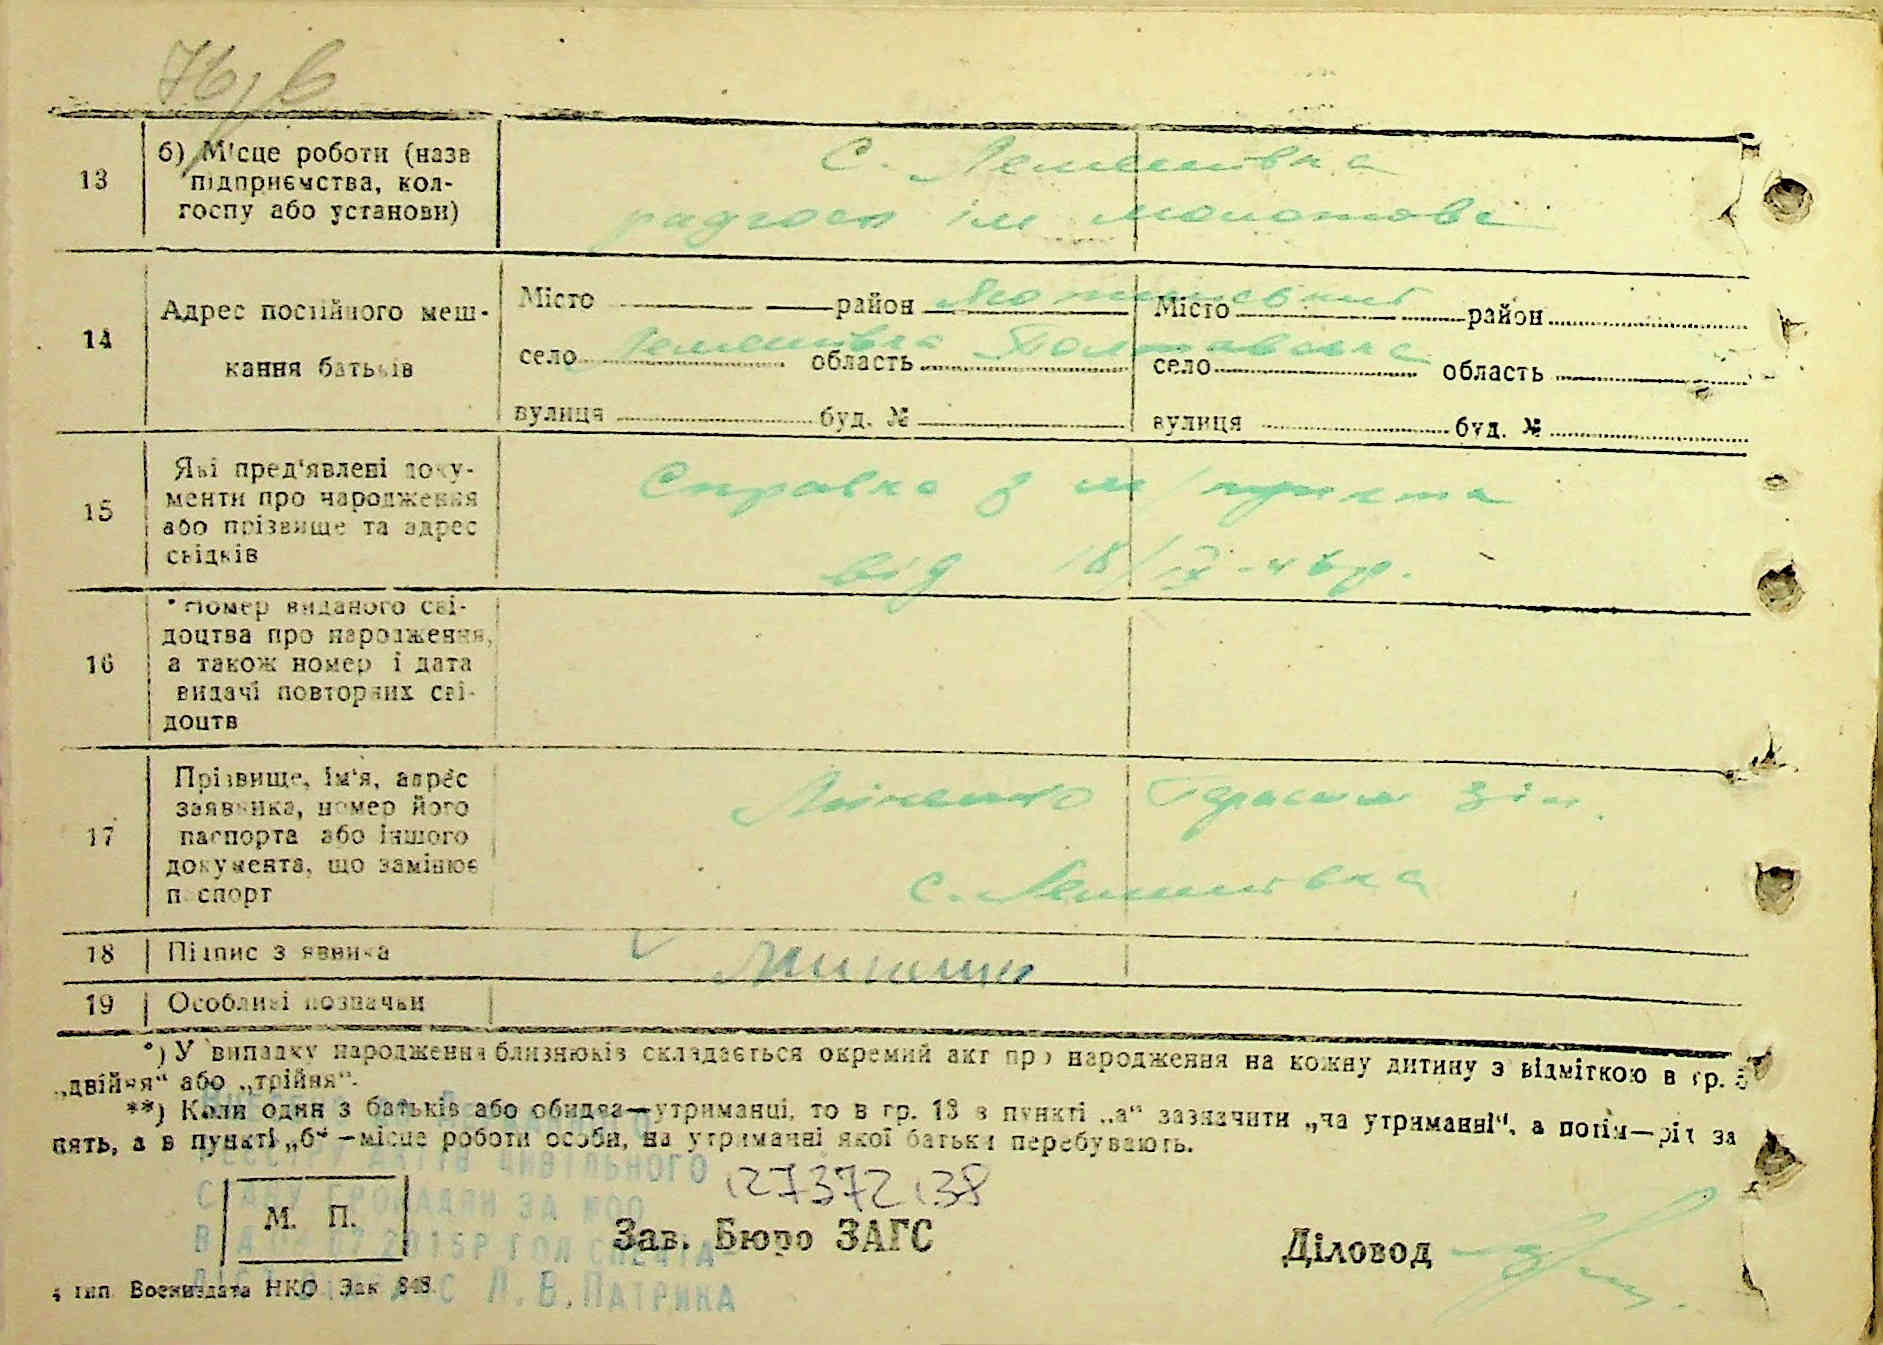 76/6
13
б) Місце роботи (назв
підприємства, кол-
госпу або установи)
С. Лемешівка
радгосп ім молотова
14
Адрес постійного меш-
кання батьків
Місто район Яготинський Місто район
село Лемешівка область Полтавська село область
вулиця буд. № вулиця буд. №
15
Які пред'явлені доку-
менти про народження
або прізвище та адрес
свідків
Справка з м/пункта
від 18/IX-46р.
16
Номер виданого сві-
доцтва про народження,
а також номер і дата
видачі повторних сві-
доцтв
17
Прізвище, ім'я, адрес
заявника, номер його
паспорта або іншого
документа, що замінює
паспорт
Герасим Зін.
с. Лемешівка
18 Підпис заявника
19 Особливі позначки
*) У випадку народження близнюків складається окремий акт про народження на кожну дитину з відміткою в гр. 5
„двійня“ або „трійня“.
**) Коли один з батьків або обидва—утриманці, то в гр. 13 в пункті „а“ зазначити „на утриманні“, а потім—рід за
нять, а в пункті „б“ —місце роботи особи, на утриманні якої батьки перебувають.
РЕЄСТРУ АКТІВ ЦИВІЛЬНОГО
СТАНУ ГРОМАДЯН ЗА №00
127372138
М. П.
Зав. Бюро ЗАГС
Діловод
2015Р ГОЛ СПЕЦ
Л. В. ПАТРИКА
4 тип. Воениздата НКО Зак 848